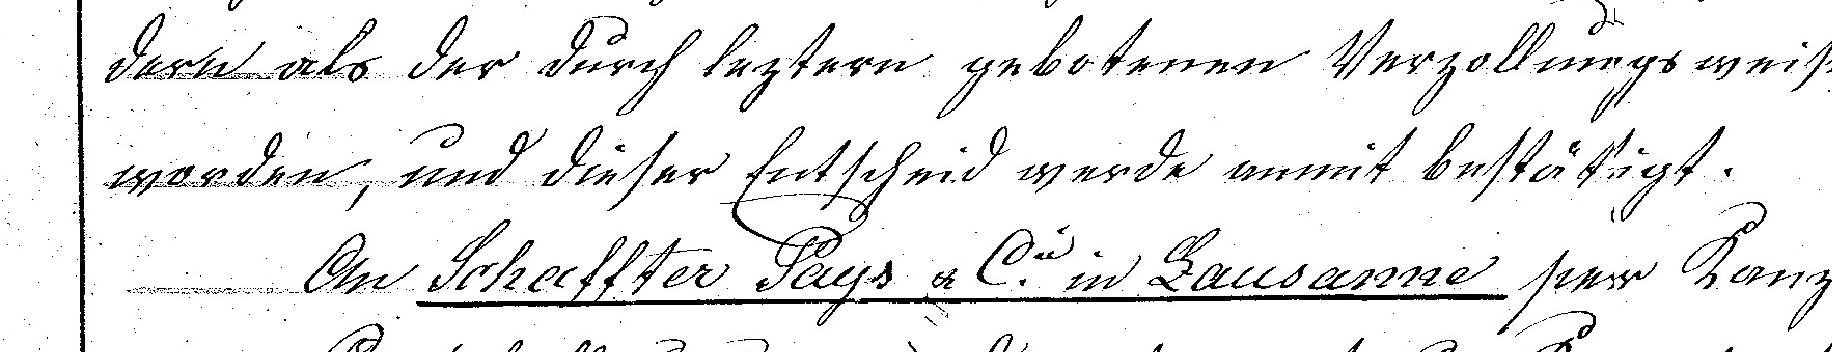 dern als der durch leztern gebotenen Verzollungsweise
worden, und dieser Entscheid werde anmit bestätigt.
An Schaffter Pays & Cie in Lausanne per Kanz